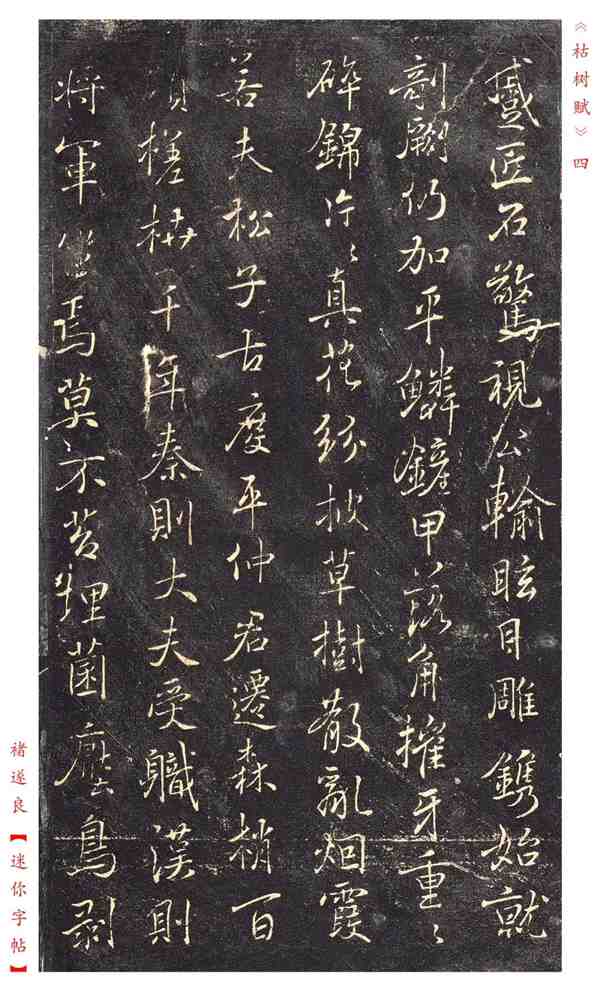 《枯树赋》四
蹙匠石驚視公輸眩目雕鐫始就
剞劂仍加平鱗鏟甲落角摧牙重〻
碎錦片〻真花紛披草樹散亂烟霞
若夫松子古度平仲君遷森梢百
頃槎枿千年秦則大夫受職漢則
將軍坐焉莫不苔埋菌壓鳥剝
褚遂良【迷你字帖】